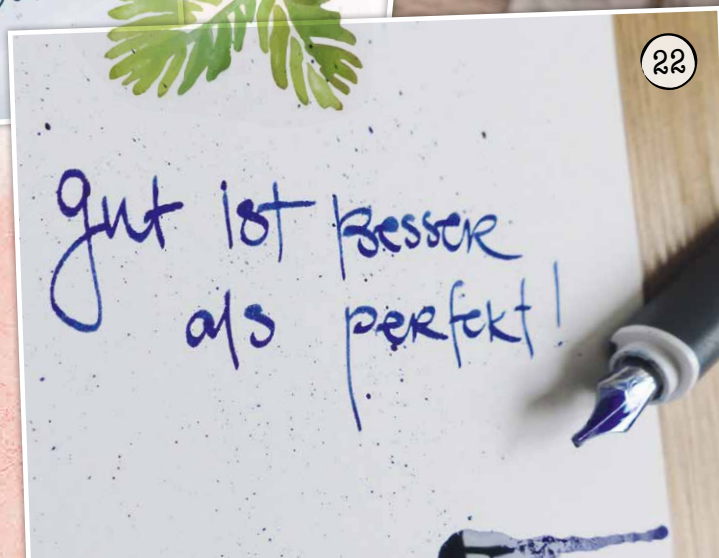 22
gut ist besser
als perfekt!